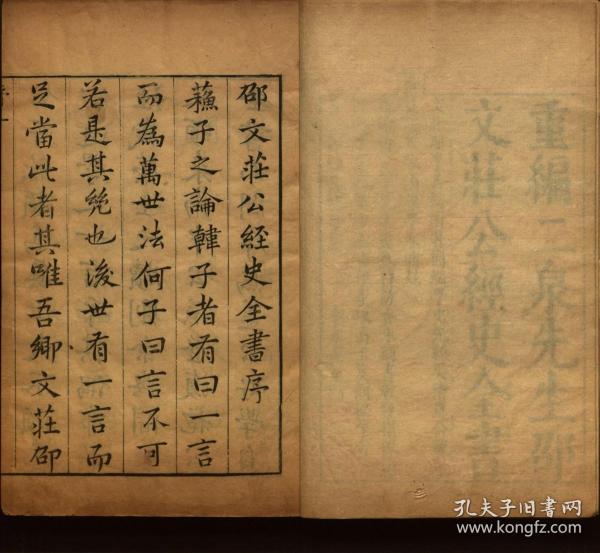 重編二泉先生邵
文莊公經史全書
邵文莊公經史全書序
蘓子之論韓子者有曰一言
而為萬世法何子曰言不可
若是其㡬也後世有一言而
足當此者其唯吾鄉文莊邵
孔夫子旧书网
www.kongfz.com